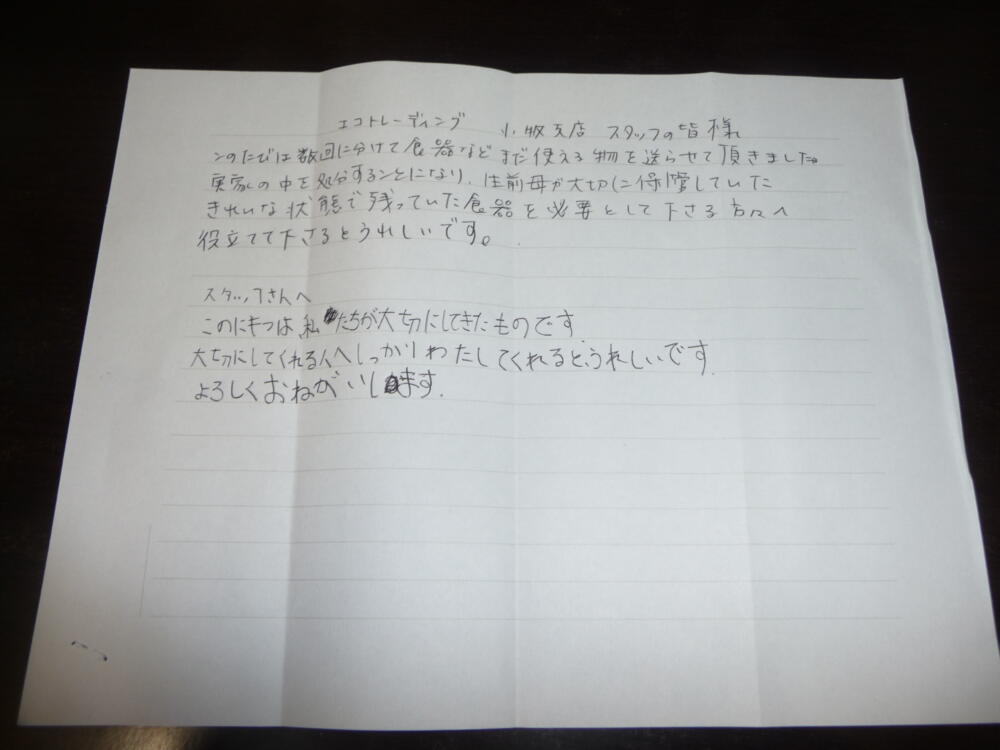 エコトレーディング 小牧支店 スタッフの皆様
このたびは数回に分けて食器などまだ使える物を送らせて頂きました。
実家の中を処分することになり、生前母が大切に保管していた
きれいな状態で残っていた食器を必要として下さる方々へ
役立てて下さるとうれしいです。
スタッフさんへ
このにもつは私たちが大切にしてきたものです
大切にしてくれる人へしっかりわたしてくれると、うれしいです.
よろしくおねがいします.